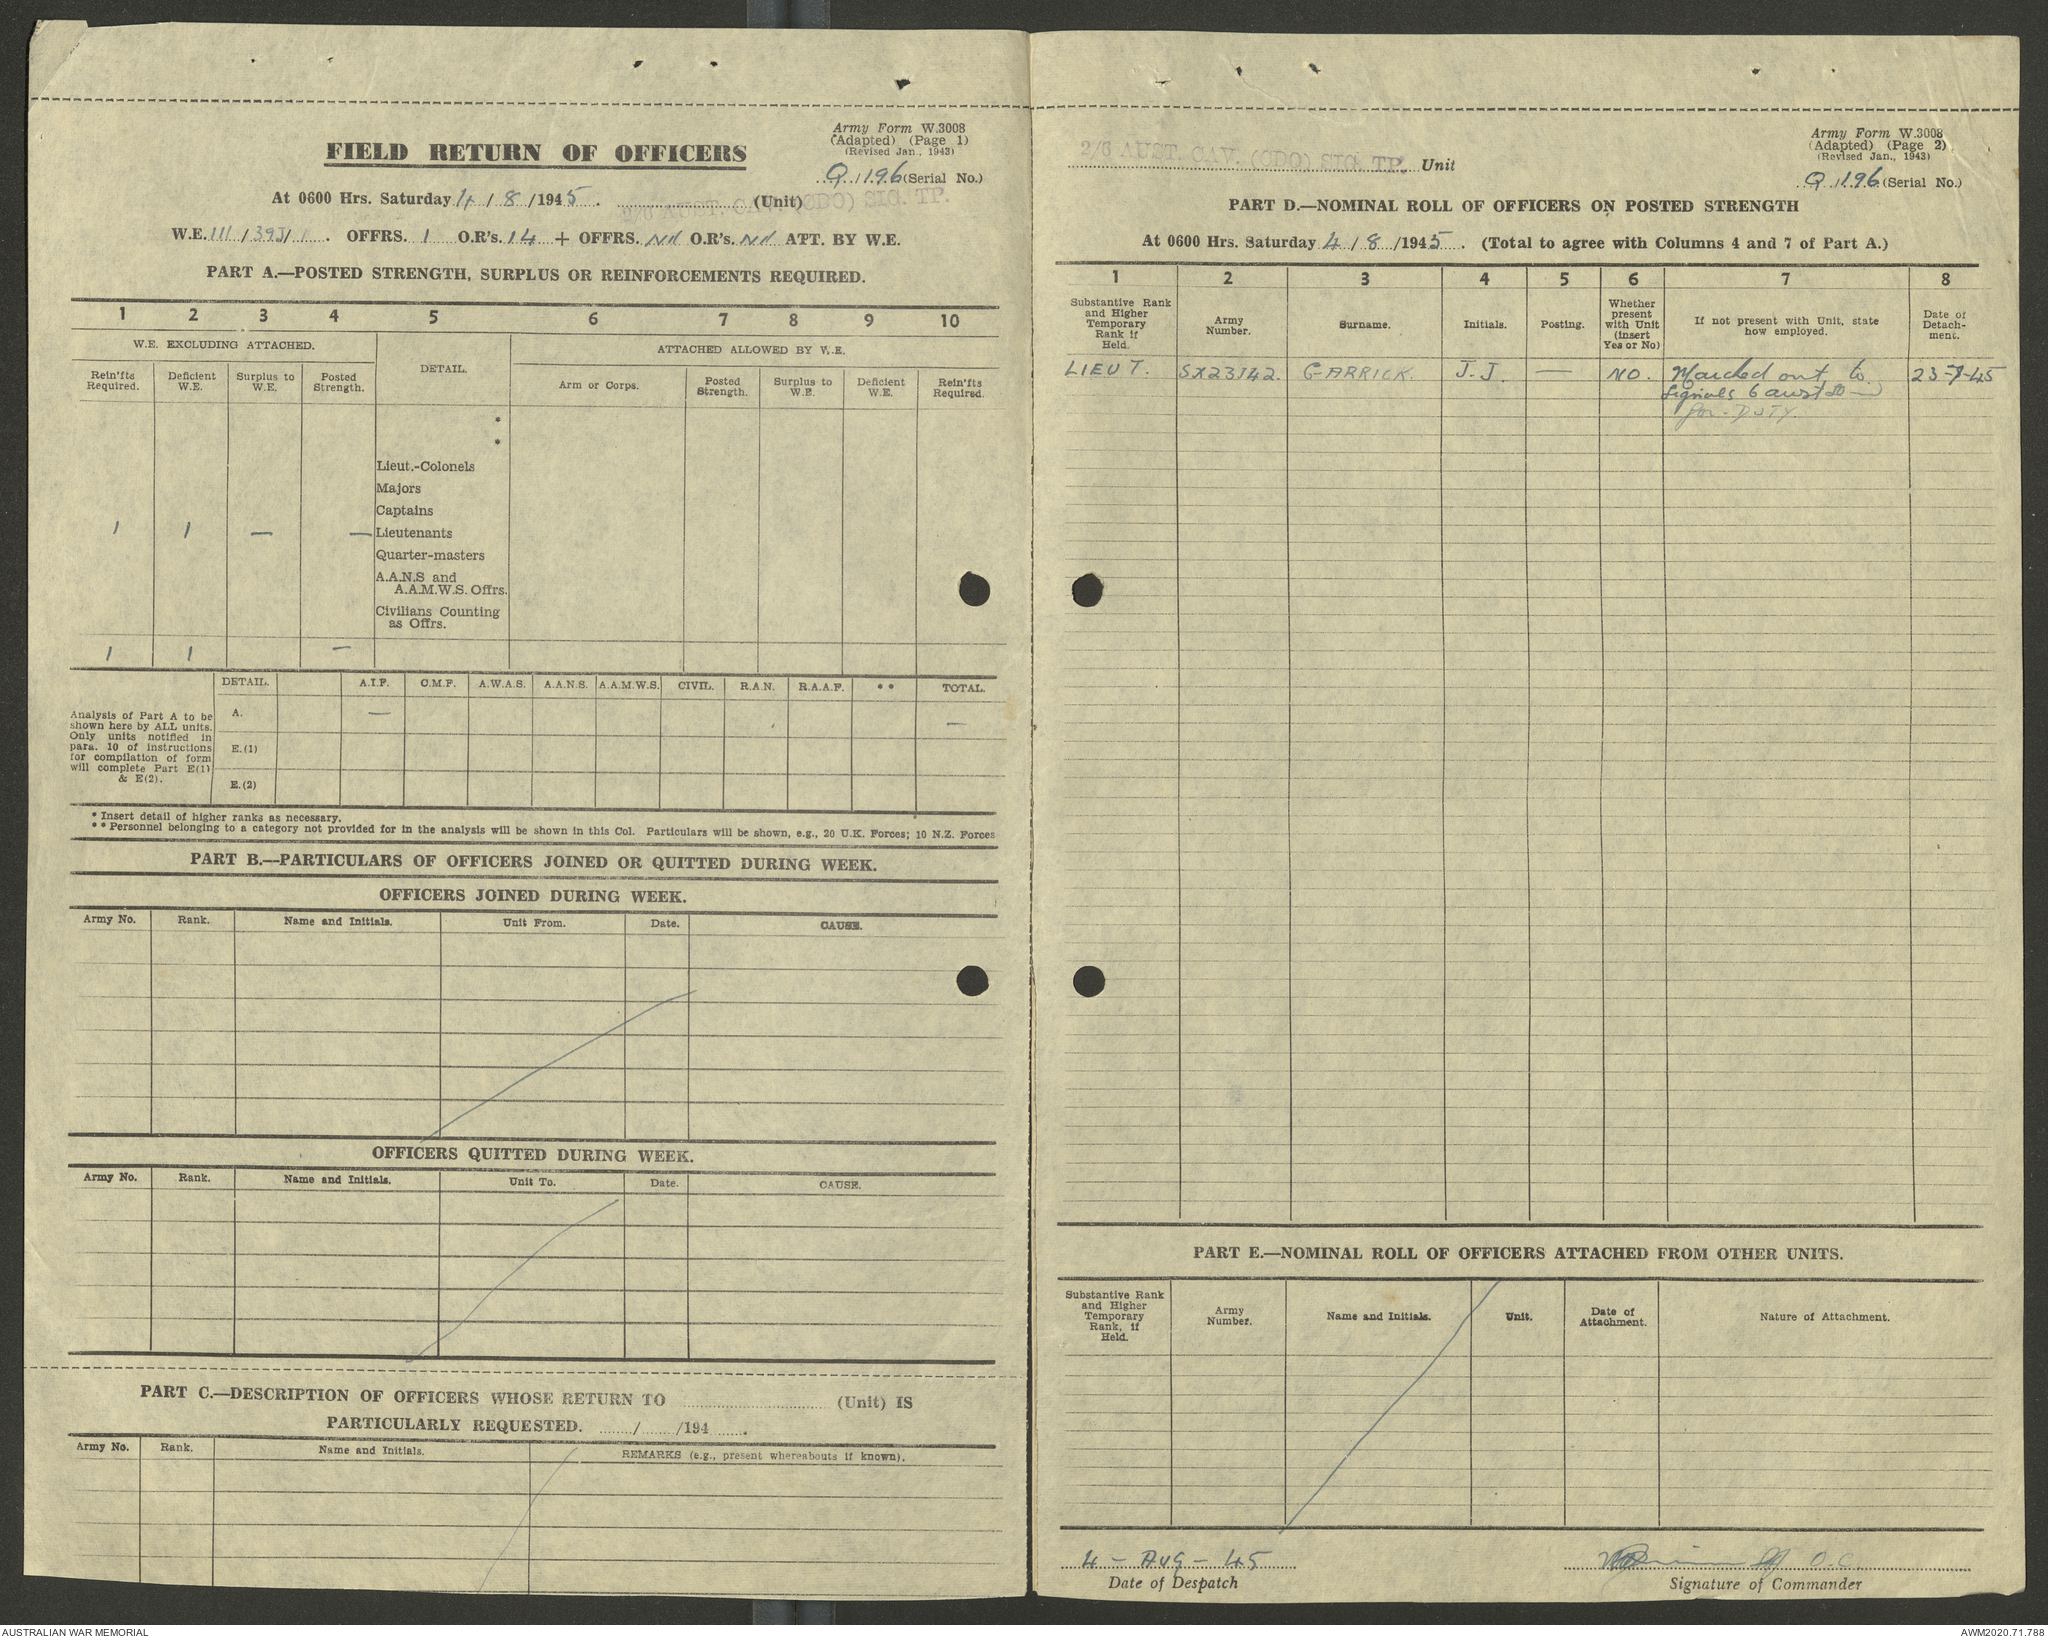 Army Form W.3008
(Adapted) (Page 1)
(Revised Jan., 1943)
FIELD RETURN OF OFFICERS
Q 1196 (Serial No.)
At 0600 Hrs. Saturday 4 / 8 / 1945. 2/6 AUST. CAV. (CDO) SIG. TP. (Unit)
W.E. III / 39J / 1. OFFRS. 1 O.R's. 14 + OFFRS. Nil O.R's. Nil ATT. BY W.E.
PART A.—POSTED STRENGTH, SURPLUS OR REINFORCEMENTS REQUIRED.
1 2 3 4 5 6 7 8 9 10
W.E. EXCLUDING ATTACHED. DETAIL. ATTACHED ALLOWED BY W.E.
Rein'fts Required. Deficient W.E. Surplus to W.E. Posted Strength. Arm or Corps. Posted Strength. Surplus to W.E. Deficient W.E. Rein'fts Required.
*
*
Lieut.-Colonels
Majors
Captains
1 1 — — Lieutenants
Quarter-masters
A.A.N.S and
A.A.M.W.S. Offrs.
Civilians Counting
as Offrs.
1 1 —
DETAIL. A.I.F. C.M.F. A.W.A.S. A.A.N.S. A.A.M.W.S. CIVIL. R.A.N. R.A.A.F. ** TOTAL.
Analysis of Part A to be
shown here by ALL units.
Only units notified in
para. 10 of instructions
for compilation of form
will complete Part E(1)
& E(2).
A. — —
E.(1)
E.(2)
* Insert detail of higher ranks as necessary.
** Personnel belonging to a category not provided for in the analysis will be shown in this Col. Particulars will be shown, e.g., 20 U.K. Forces; 10 N.Z. Forces
PART B.—PARTICULARS OF OFFICERS JOINED OR QUITTED DURING WEEK.
OFFICERS JOINED DURING WEEK.
Army No. Rank. Name and Initials. Unit From. Date. CAUSE.
OFFICERS QUITTED DURING WEEK.
Army No. Rank. Name and Initials. Unit To. Date. CAUSE.
PART C.—DESCRIPTION OF OFFICERS WHOSE RETURN TO (Unit) IS
PARTICULARLY REQUESTED. / /194 .
Army No. Rank. Name and Initials. REMARKS (e.g., present whereabouts if known).
Army Form W.3008
(Adapted) (Page 2)
(Revised Jan., 1943)
2/6 AUST. CAV. (CDO) SIG. TP. Unit
Q 1196 (Serial No.)
PART D.—NOMINAL ROLL OF OFFICERS ON POSTED STRENGTH
At 0600 Hrs. Saturday 4 / 8 / 1945. (Total to agree with Columns 4 and 7 of Part A.)
1 2 3 4 5 6 7 8
Substantive Rank and Higher Temporary Rank if Held. Army Number. Surname. Initials. Posting. Whether present with Unit (insert Yes or No) If not present with Unit, state how employed. Date of Detachment.
LIEUT. SX23142. GARRICK. J.J. — NO. Marched out to 23-7-45
Signals 6 aust
for DUTY.
PART E.—NOMINAL ROLL OF OFFICERS ATTACHED FROM OTHER UNITS.
Substantive Rank and Higher Temporary Rank, if Held. Army Number. Name and Initials. Unit. Date of Attachment. Nature of Attachment.
4 - Aug - 45
O.C.
Date of Despatch Signature of Commander
AUSTRALIAN WAR MEMORIAL AWM2020.71.788